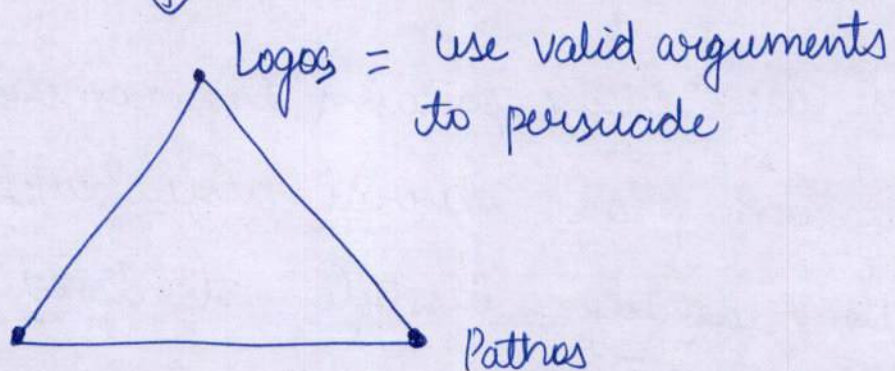 Logos = use valid arguments
to persuade
Pathos